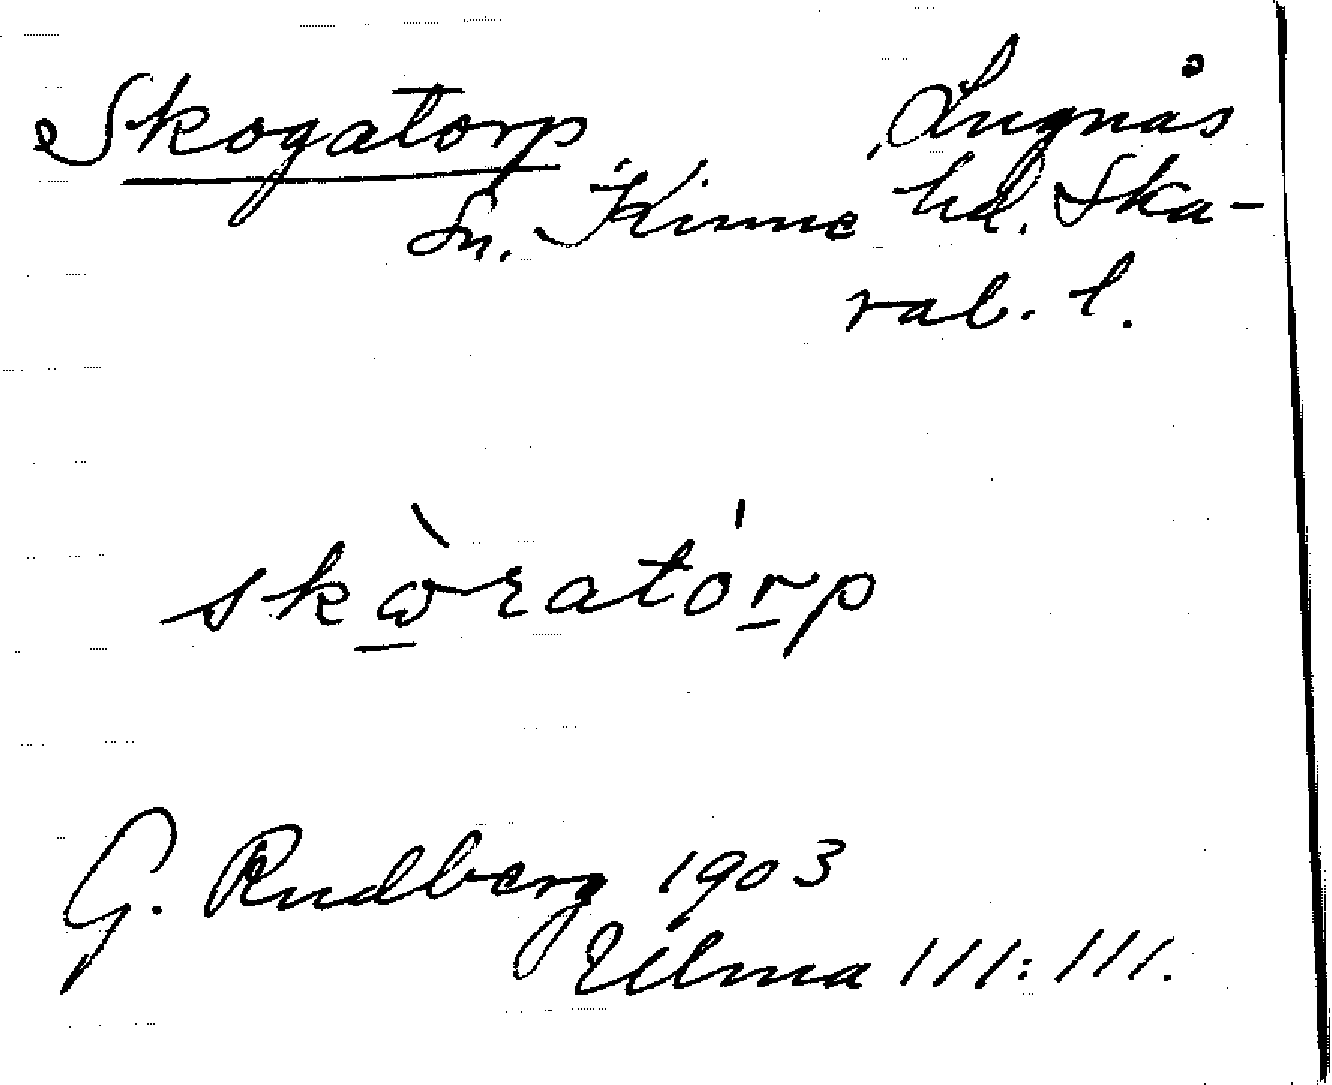 Skogatorp Lugnås
Sn. Kinne hd. Ska-
rab. l.
skꞷ̀ratórp
G. Rudberg 1903
Ulma 111:111.